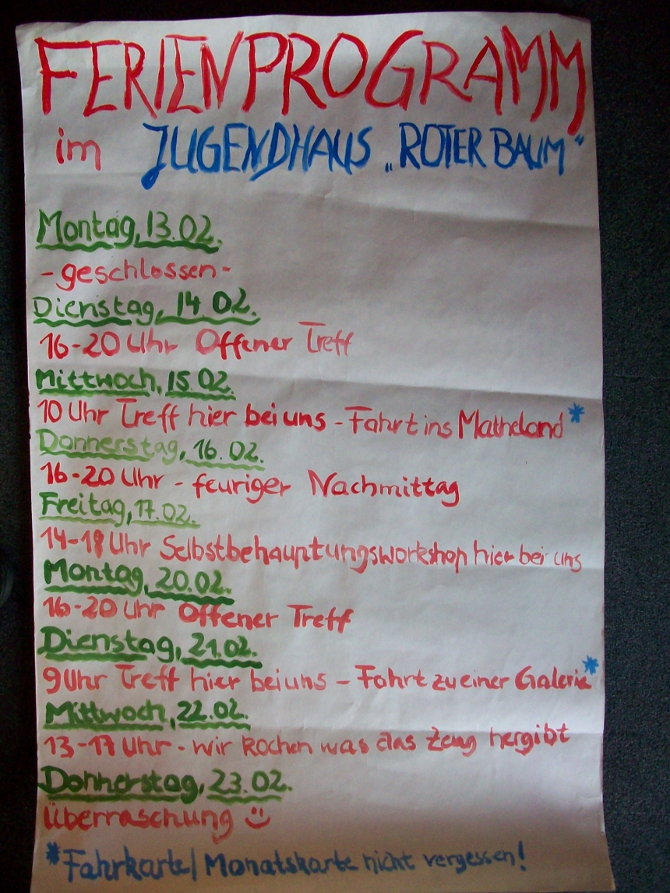 FERIENPROGRAMM
im JUGENDHAUS „ROTER BAUM“
Montag, 13.02.
-geschlossen-
Dienstag, 14.02.
16-20 Uhr Offener Treff
Mittwoch, 15.02.
10 Uhr Treff hier bei uns - Fahrt ins Matheland*
Donnerstag, 16.02.
16-20 Uhr - feuriger Nachmittag
Freitag, 17.02.
14-18 Uhr Selbstbehauptungsworkshop hier bei uns
Montag, 20.02.
16-20 Uhr Offener Treff
Dienstag, 21.02.
9 Uhr Treff hier bei uns - Fahrt zu einer Galerie*
Mittwoch, 22.02.
13-17 Uhr - wir kochen was das Zeug hergibt
Donnerstag, 23.02.
Überraschung ☺
*Fahrkarte/Monatskarte nicht vergessen!